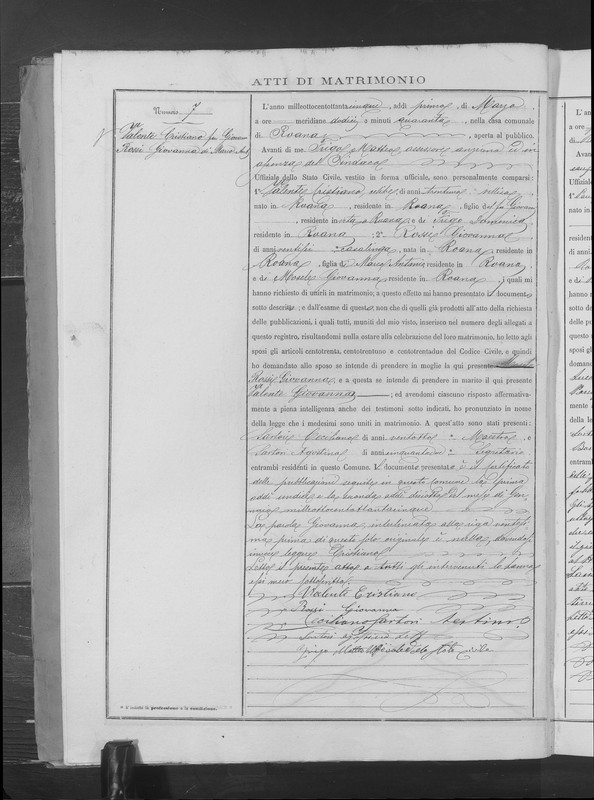 ATTI DI MATRIMONIO
Numero 7
Valente Cristiano fu Giovanni
Rossi Giovanna di Marco Ant.
L'anno milleottocentottantacinque, addì primo di Marzo
a ore meridiane dodici e minuti quaranta, nella casa comunale
di Roana, aperta al pubblico.
Avanti di me Frigo Matteo assessore anziano ed in
assenza del Sindaco
Uffiziale dello Stato Civile, vestito in forma ufficiale, sono personalmente comparsi:
1° Valente Cristiano, celibe, di anni trentuno, villico
nato in Roana, residente in Roana, figlio di fu Giovanni
, residente in vita a Roana, e di Frigo Domenica
residente in Roana; 2° Rossi Giovanna
di anni ventisei casalinga, nata in Roana, residente in
Roana, figlia di Marco Antonio, residente in Roana,
e di Mosele Giovanna, residente in Roana; i quali mi
hanno richiesto di unirli in matrimonio; a questo effetto mi hanno presentato il documento
sotto descritto; e dall'esame di questo, non che di quelli già prodotti all'atto della richiesta
delle pubblicazioni, i quali tutti, muniti del mio visto, inserisco nel numero degli allegati a
questo registro, risultandomi nulla ostare alla celebrazione del loro matrimonio, ho letto agli
sposi gli articoli centotrenta, centotrentuno e centotrentadue del Codice Civile, e quindi
ho domandato allo sposo se intende di prendere in moglie la qui presente
Rossi Giovanna, e a questa se intende di prendere in marito il qui presente
Valente Giovanna; ed avendomi ciascuno risposto affermativa-
mente a piena intelligenza anche dei testimoni sotto indicati, ho pronunziato in nome
della legge che i medesimi sono uniti in matrimonio. A quest'atto sono stati presenti:
Sartori Ceciliano, di anni ventotto, Maestro, e
Sartori Agostino, di anni cinquantasei, Segretario,
entrambi residenti in questo Comune. Il documento presentato è il certificato
delle pubblicazioni eseguite in questo comune la prima
addì undici e la seconda addì diciotto del mese di Gen-
naio milleottocentottantacinque
La parola Giovanna interlineata alla riga ventesi-
ma prima di questo foto originale è nulla, dovendosi
invece leggere Cristiano
Letto il presente atto a tutti gli intervenuti lo hanno
essi meco sottoscritto
Valente Cristiano
Rossi Giovanna
Ceciliano Sartori Testimo
Frigo Matteo Uffiziale dello Stato Civile